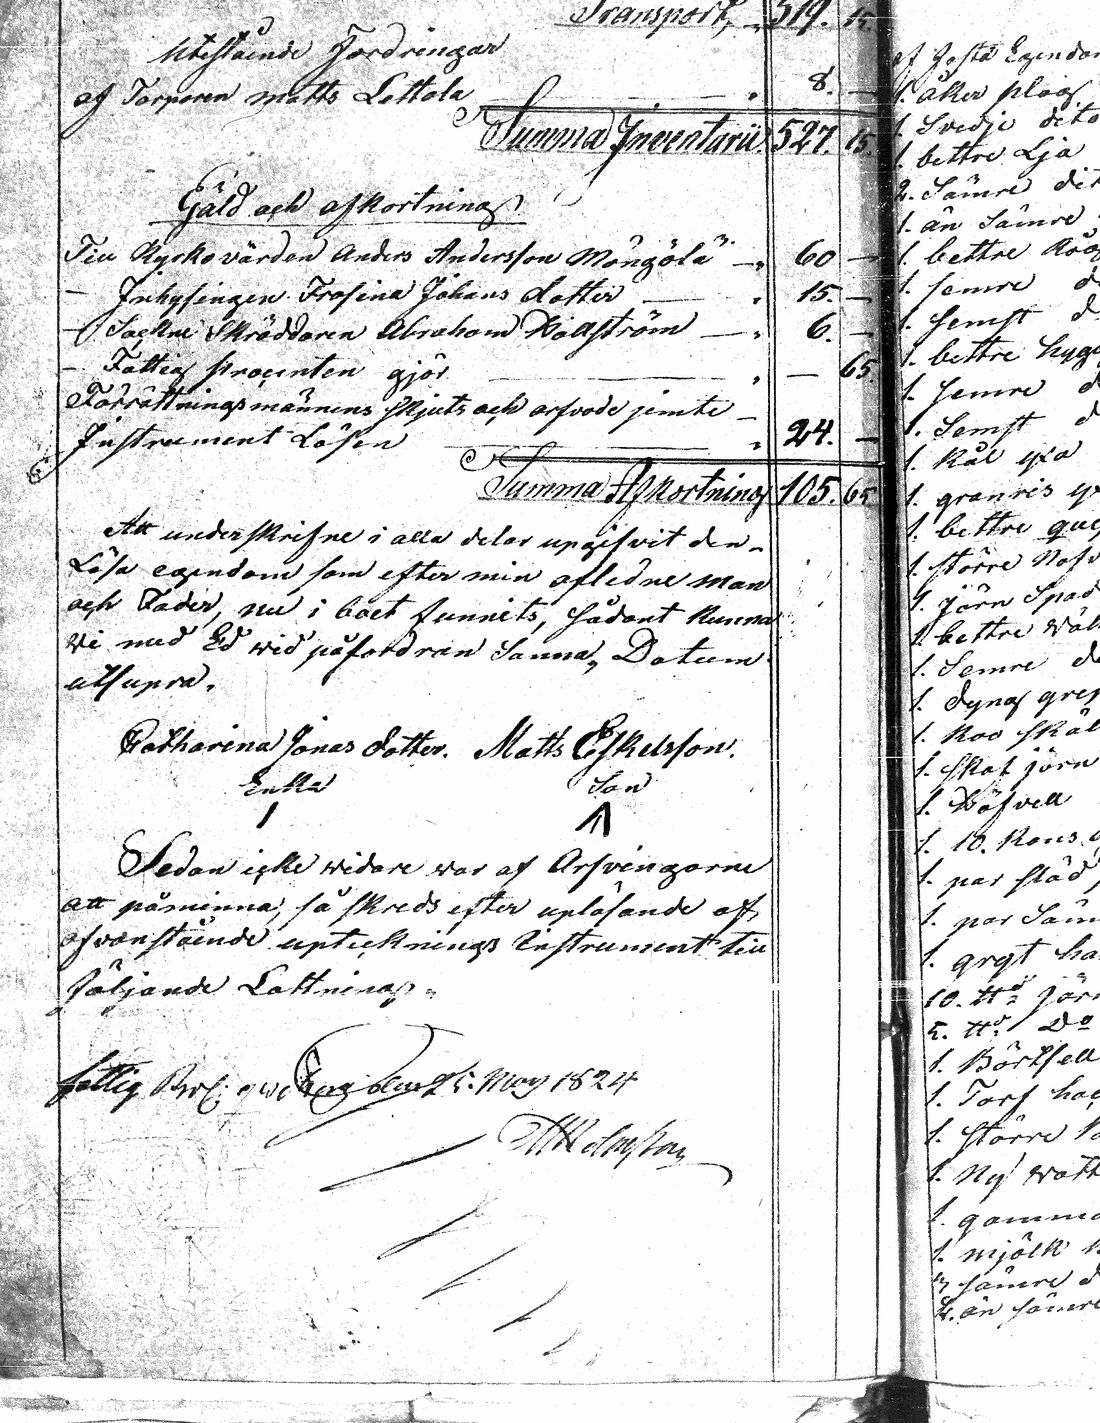 Transport, 519. 15.
Utestående Fordringar
af Torparen Matts Lottola 8. —
Summa Inventarii 527. 15.
Gäld och afkortning
Till Kyrkovärden Anders Andersson Mångölä 60 —
— Inhysingen Frosina Johans dotter 15. —
— Sockne Skräddaren Abraham Wallström 6. —
— Fattig procenten gjör — 65.
Förrättningsmännens skjuts och arfvode jemte
Instrument Lösen 24. —
Summa Afkortning 105. 65
Att underskrifne i alla delar upgifvit den
Lösa egendom som efter min afledne man
och Fader, nu i boet funnits, sådant kunna
vi med Ed wid påfordran sanna, Datum
utsupra.
Catharina Jonas dotter. Matts Eskelsson.
Enka Son
Sedan icke widare war af Arfvingarne
att påminna, så skreds efter uplåsande af
ofvanstående uptecknings Instrument till
följande Lottning
fattig 25. May 1824
af Josta Egendom
1. åker plog
1. Svedje dito
1. bettre Lja
2. Sämre
1. än Sämre
1. bettre
1. semre
1. Semst
1. bettre
1. Semre
1. Semst
1. Kål yxa
1. granris
1. bettre
1. större
1. Jörn Spad
1. bettre
1. Semre
1. dyng grep
1. Roo skål
1. skat jörn
1.
1. 10. Kans
1. par släd
1. par Säm
1. gryt ha
10. ttd jörn
5. ttd Do
1.
1. Torf hac
1. större
1. Ny watt
1. gamma
1. mjölk
sämre
än sämre